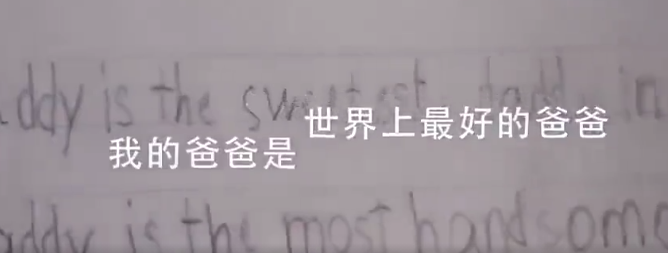 ddy is the sweetest daddy in
我的爸爸是
世界上最好的爸爸
addy is the most handsome